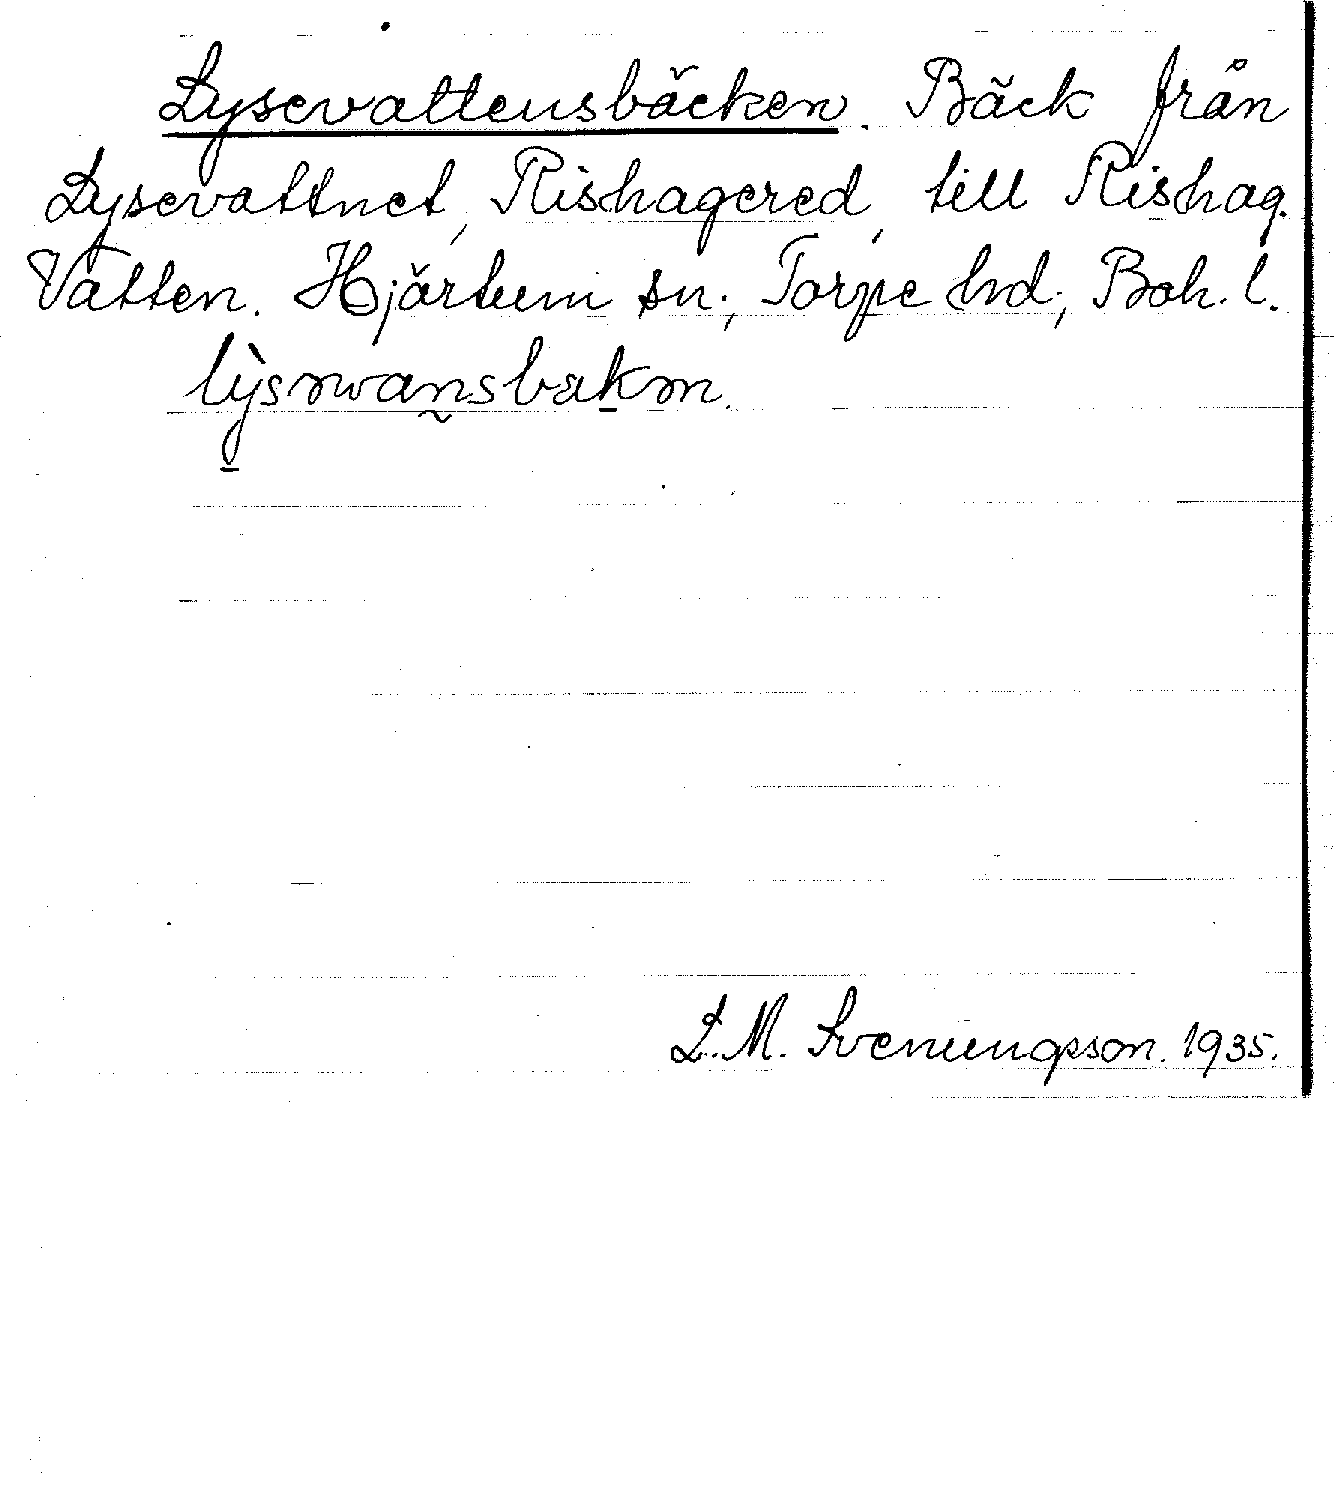 Lysevattensbäcken. Bäck från
Lysevattnet, Rishagered, till Rishag.
Vatten. Hjärtum sn., Torpe hd., Boh. l.
L.M. Svenungsson. 1935.